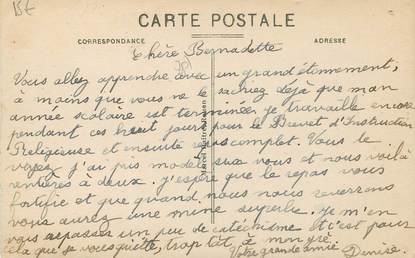 15E
CARTE POSTALE
CORRESPONDANCE
ADRESSE
Chère Bernadette
Vous allez apprendre avec un grand étonnement,
à moins que vous ne le sachiez déjà que mon
année scolaire est terminée, je travaille encore
pendant ces huit jours pour le Brevet d'Instruction
Religieuse et ensuite repos complet. Vous le
voyez j'ai pris modèle sur vous et nous voilà
rentières à deux. j'espère que le repos vous
fortifie et que quand nous nous reverrons
vous aurez une mine superbe. je m'en
vais repasser un peu de catéchisme et c'est pour
cela que je vous quitte, trop tôt, à mon gré.
Votre grande amie Denise.